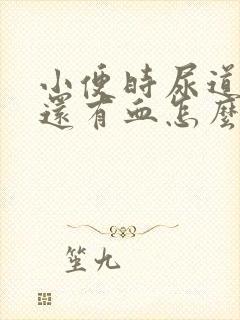 小便时尿道
還有血怎麽
笙九